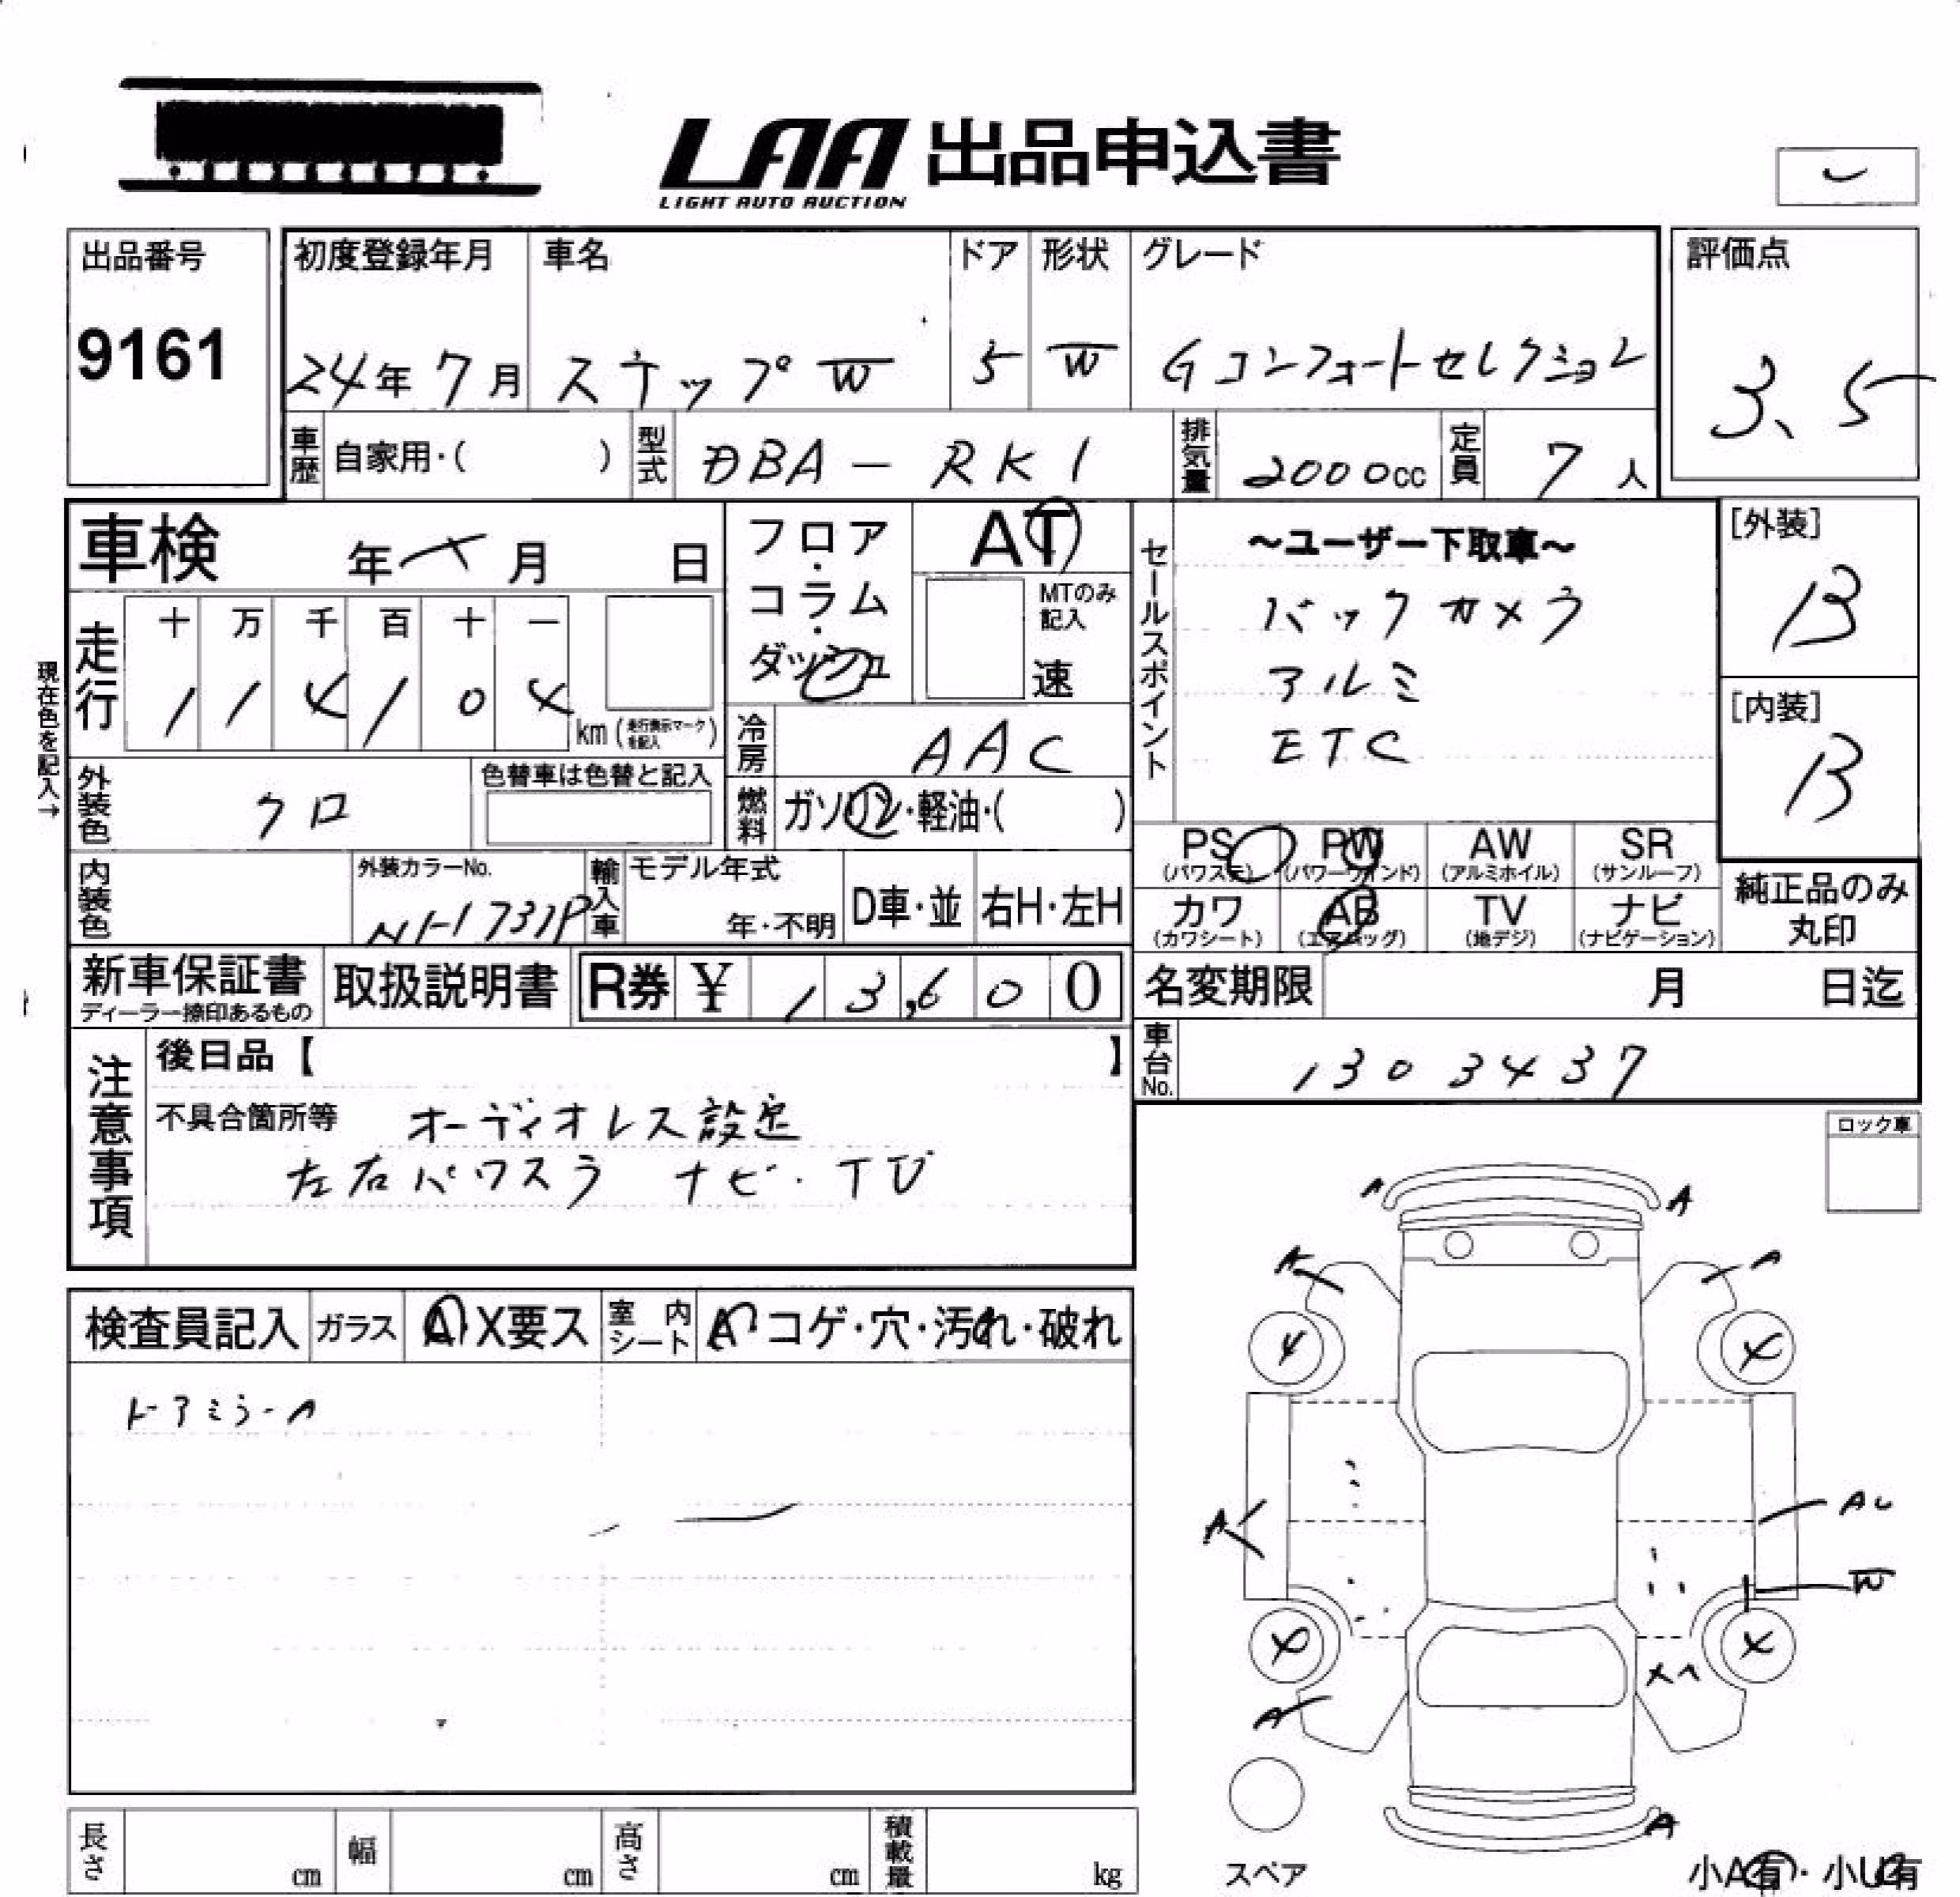 LAA 出品申込書
LIGHT AUTO AUCTION
出品番号
9161
初度登録年月
24年7月
車名
ステップW
ドア
5
形状
W
グレード
Gコンフォートセレクション
評価点
3.5
車歴
自家用・( )
型式
DBA-RK1
排気量
2000cc
定員
7人
車検
年 月 日
走行
十 万 千 百 十 一
1 1 4 1 0 4
km(走行表示マークを記入)
現在色を記入→
フロア・コラム・ダッシュ
AT
MTのみ記入
速
冷房
AAC
燃料
ガソリン・軽油・( )
セールスポイント
～ユーザー下取車～
バックカメラ
アルミ
ETC
[外装]
B
[内装]
B
外装色
クロ
色替車は色替と記入
内装色
外装カラーNo.
NH731P
輸入車
モデル年式
年・不明
D車・並
右H・左H
PS
(パワステ)
PW
(パワーウインド)
AW
(アルミホイル)
SR
(サンルーフ)
カワ
(カワシート)
AB
(エアバッグ)
TV
(地デジ)
ナビ
(ナビゲーション)
純正品のみ
丸印
新車保証書
ディーラー捺印あるもの
取扱説明書
R券 ¥ 13,600
名変期限
月 日迄
車台No.
1303437
注意事項
後日品【 】
不具合箇所等 オーディオレス設定
左右パワスラ ナビ・TV
ロック車
検査員記入
ガラス
A X要ス
室内シート
A コゲ・穴・汚れ・破れ
ドアミラーA
A
A
A
A
4
4
A
AU
W
4
4
XA
A
A
スペア
小A有・小U有
長さ
cm
幅
cm
高さ
cm
積載量
kg